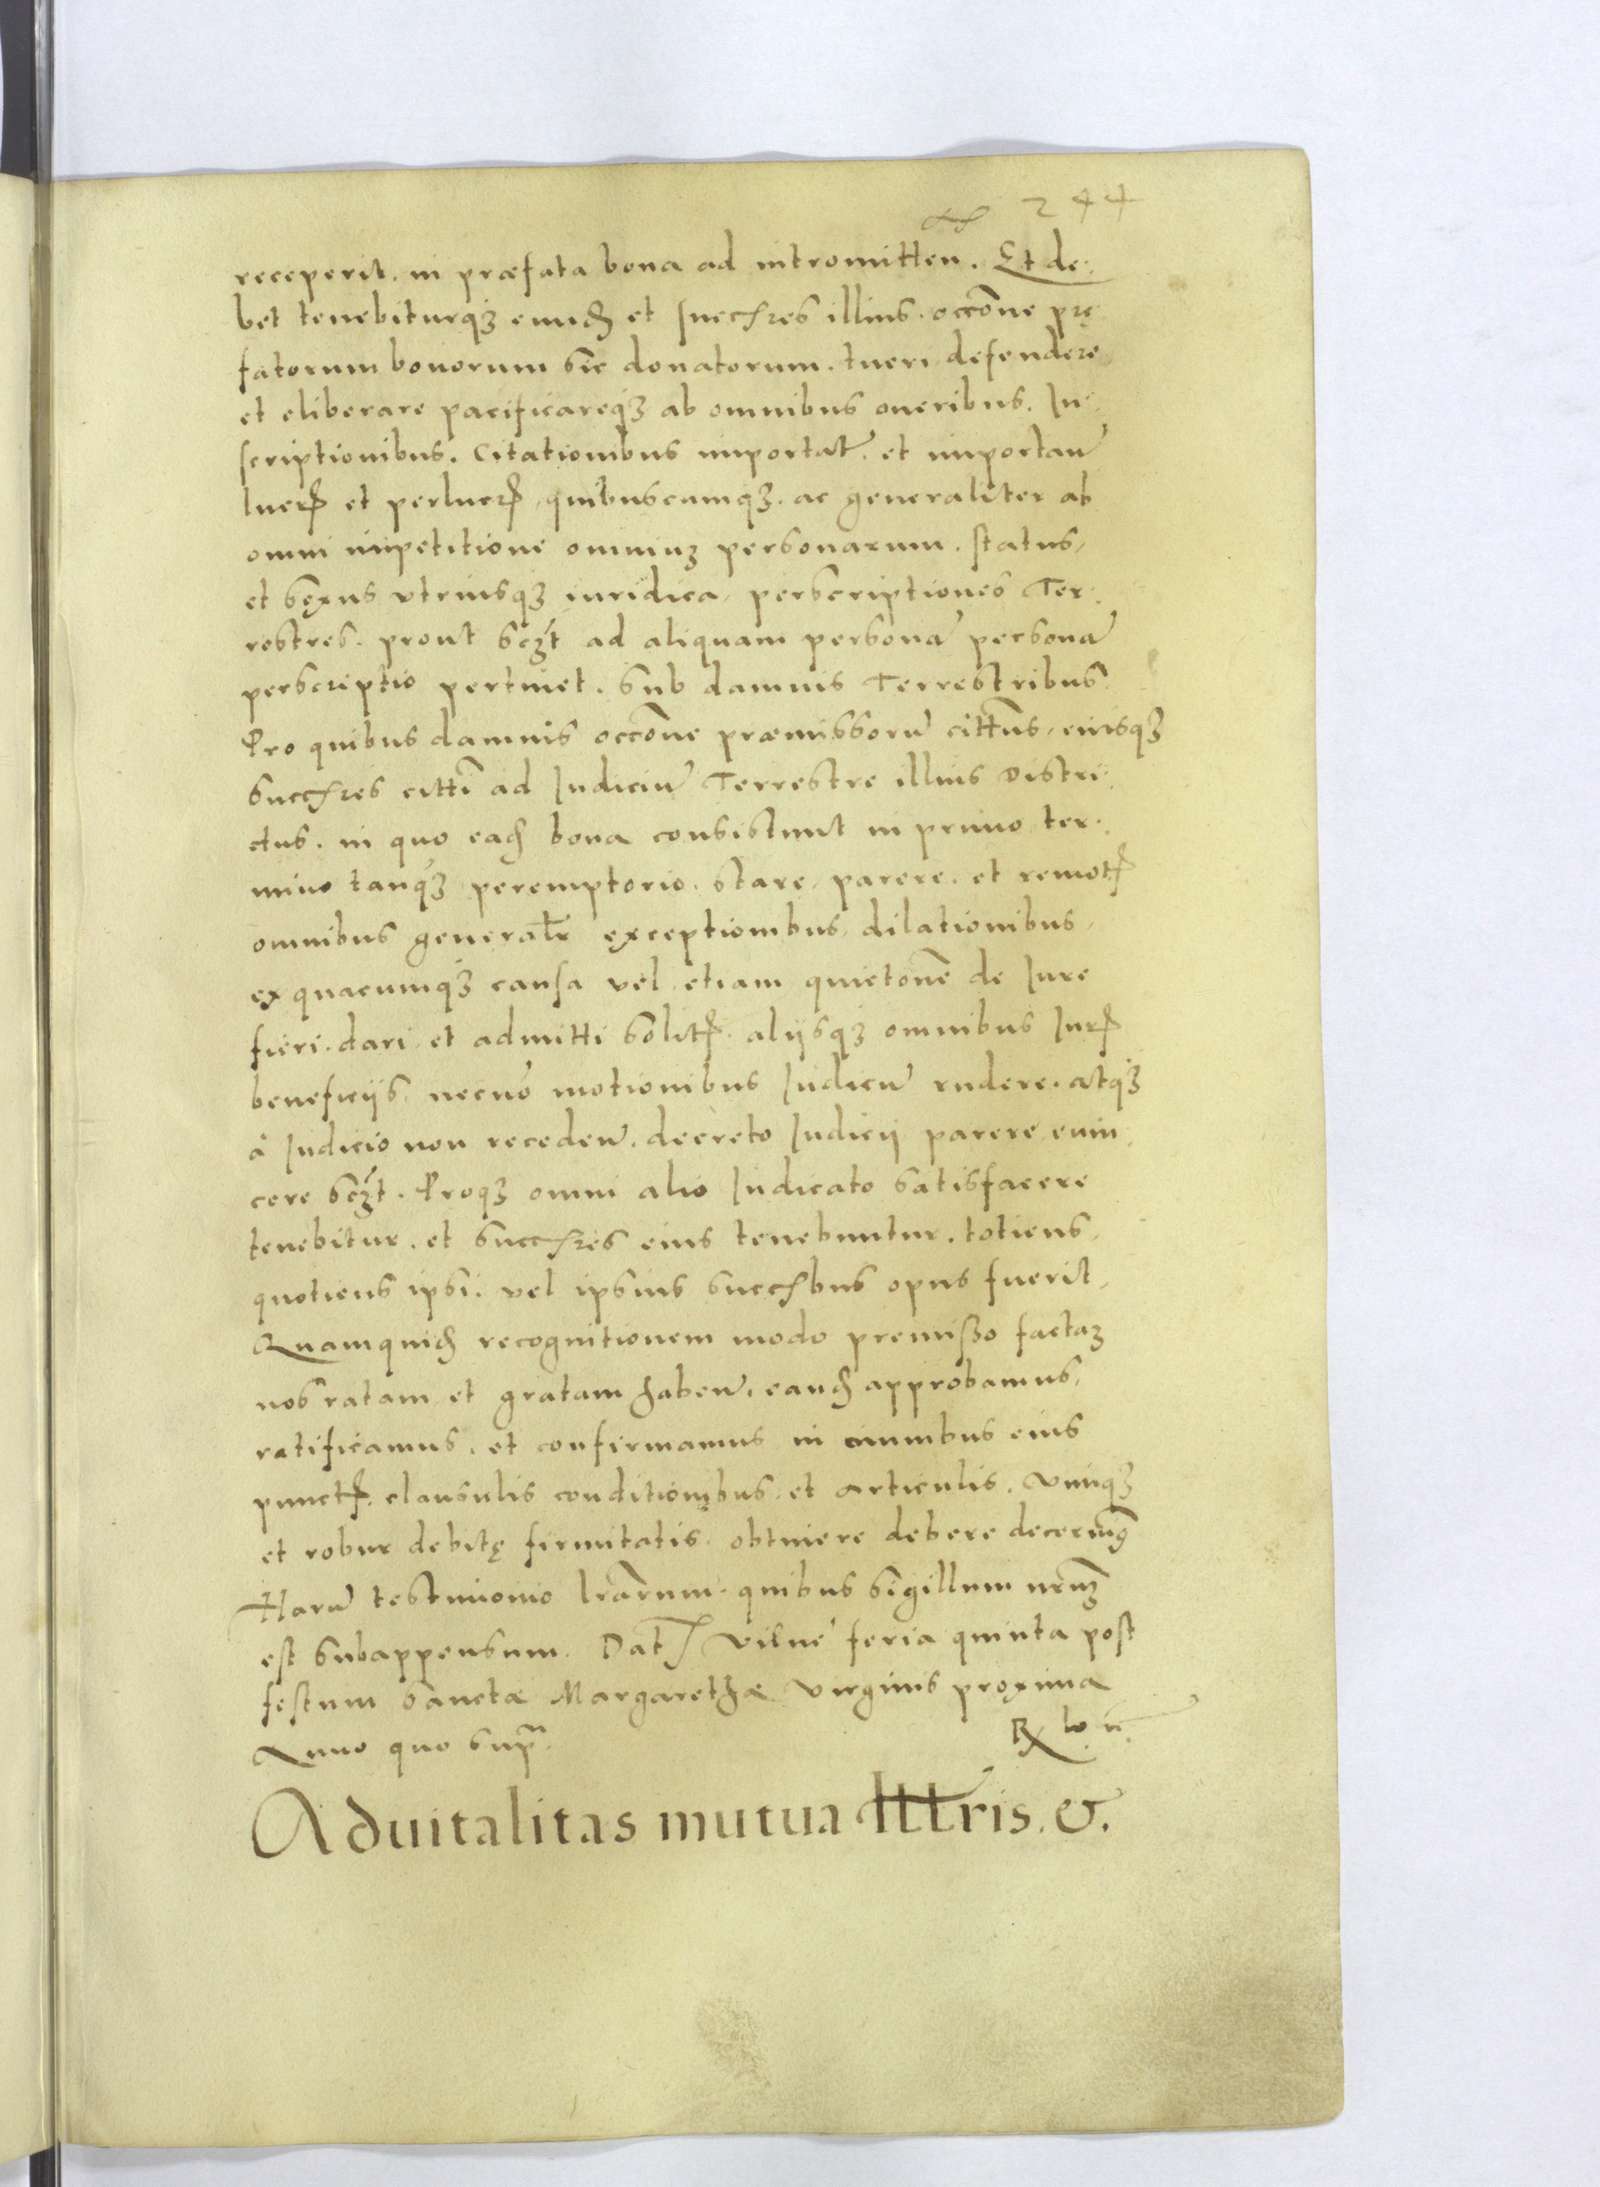 244
receperit. in præfata bona ad intromitten. Et de.
bet tenebiturqȝ eundē et succes̄res illius. occōne prę
fatorum bonorum sic donatorum. tueri defendere
et eliberare pacificareqȝ ab omnibus oneribus. In
scriptionibus. Citationibus importat̄. et importan̄
lucrꝭ et perlucrꝭ quibuscumqȝ. ac generaliter ab
omni impetitione omniuȝ personarum. status,
et sęxus utriusqȝ iuridica, perscriptiones Ter.
restres. prout scȝt ad aliquam personā personā
perscriptio pertinet. sub damnis Terrestribus
Pro quibus damnis occōne præmissorū citt̄us, eiusqȝ
succes̄res citt̄i ad Iudiciū Terrestre illius Distri.
ctus. in quo eadē bona consistunt in primo ter.
mino tanqȝ peremptorio. stare, parere. et remotꝭ
omnibus generalr̄ exceptionibus, dilationibus,
ex quacumqȝ causa vel etiam quietōne de Iure
fieri. dari et admitti solitꝭ. alijsqȝ omnibus Iurꝭ
beneficijs. necnō motionibus Iudiciū rndere. atqȝ
à Iudicio non receden̄. decreto Iudicij parere evin.
cere scȝt. Proqȝ omni alio Iudicato satisfacere
tenebitur. et succes̄res eius tenebuntur. totiens,
quotiens ipsi. vel ipsius succes̄bus opus fuerit,
Quamquidē recognitionem modo premisso factaȝ
nos ratam et gratam haben̄. eandē approbamus,
ratificamus. et confirmamus in omnibus eius
punctꝭ. clausulis conditionibus. et articulis. vimqȝ
et robur debitę firmitatis. obtinere debere decernimꝰ
Harū testimonio lrārum. quibus sigillum nr̄mȝ
est subappensum. Datꝭ Vilnę feria quinta post
festum Sanctæ Margarethæ Virginis proxima
Anno quo supra
Aduitalitas mutua Itt̄ris. &.